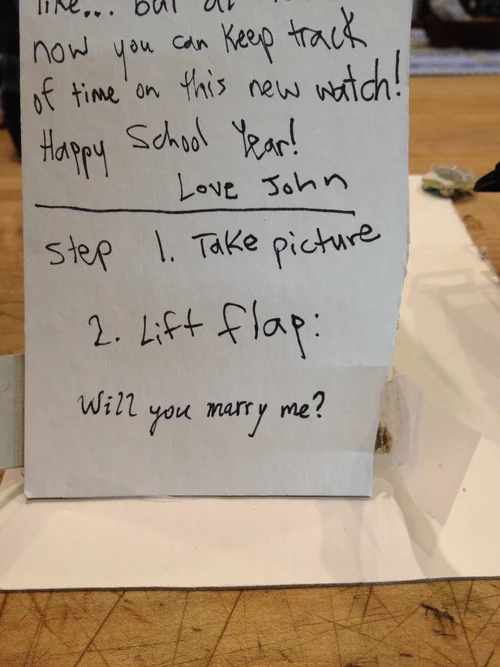 like... but at
now you can keep track
of time on this new watch!
Happy School Year!
Love John
Step 1. Take picture
2. Lift flap:
Will you marry me?